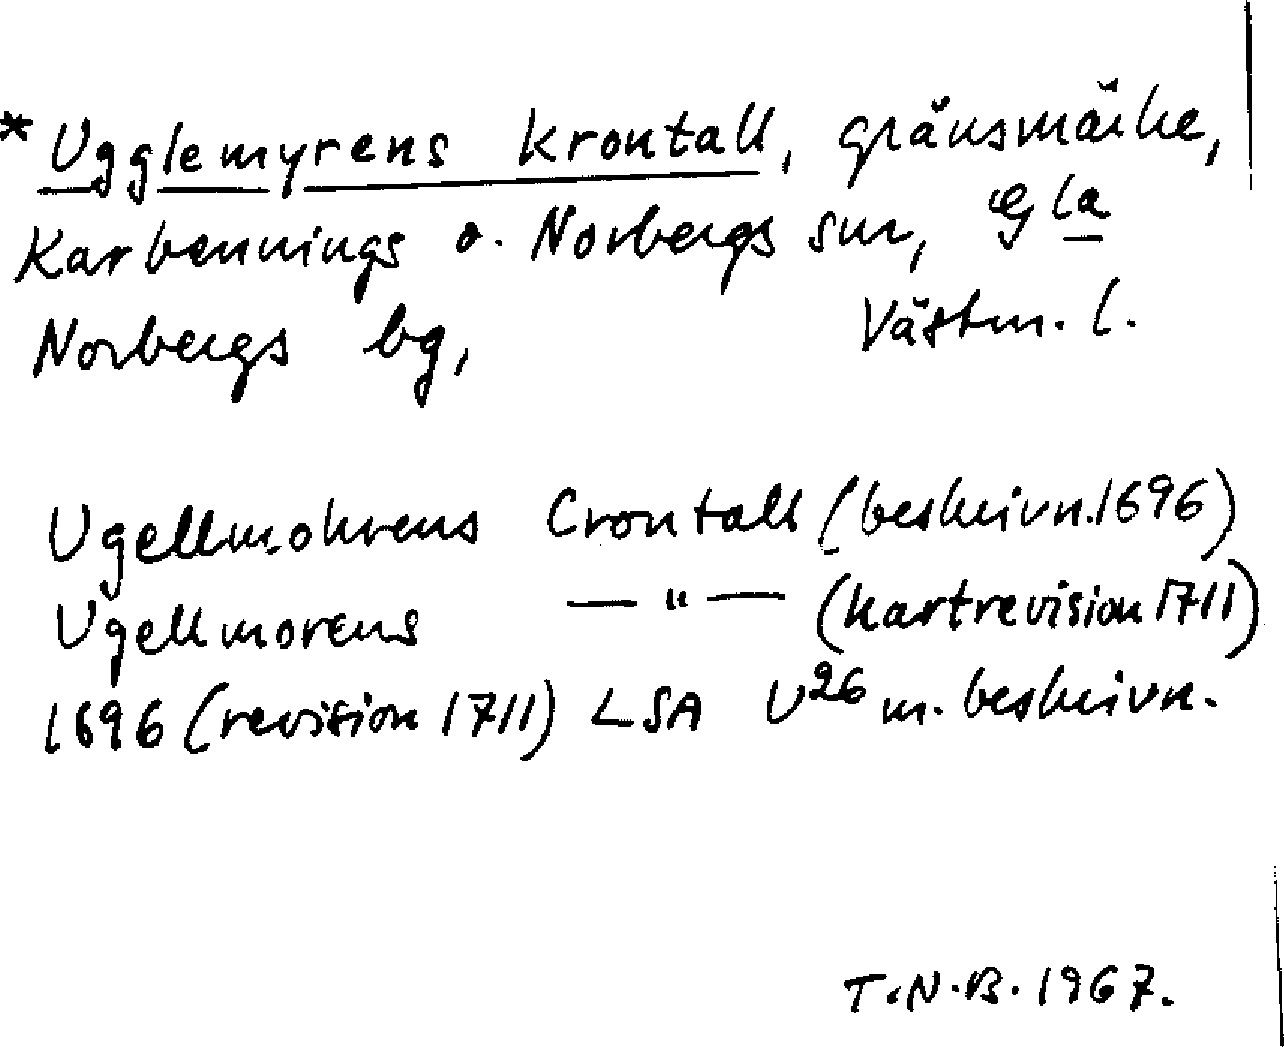 *Ugglemyrens krontall, gränsmärke,
Karbennings o. Norbergs snr, Gla
Norbergs bg, Västm. l.
Ugellmohrens Crontall (beskrivn. 1696)
Ugellmorens — " — (kartrevision 1711)
1696 (revision 1711) LSA U26 m. beskrivn.
T.N.B. 1967.